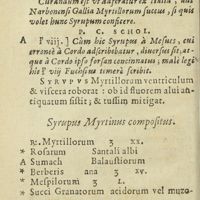 Curandum est vt adferatur ex Italia, aut
Narbonensi Gallia Myrtillorum succus, si quis
volet hunc Syrupum conficere.
P. C. SCHOL.
A [viij.] Cùm hic Syrupus à Mesues, cui
erroneè à Cordo adscribitur, diuersus sit, at-
que à Cordo ipso forsan concinnatus, malè legi
hîc [vij] Fuchsius temerè scribit.
SYRVPVS Myrtillorum ventriculum
& viscera roborat: ob id fluorem alui an-
tiquatum sistit; & tussim mitigat.
Syrupus Myrtinus compositus.
℞. Myrtillorum ʒ xx.
* Rosarum Santali albi
A Sumach Balaustiorum
* Berberis ana ʒ xv.
* Mespilorum ʒ L.
* Succi Granatorum acidorum vel muzo-